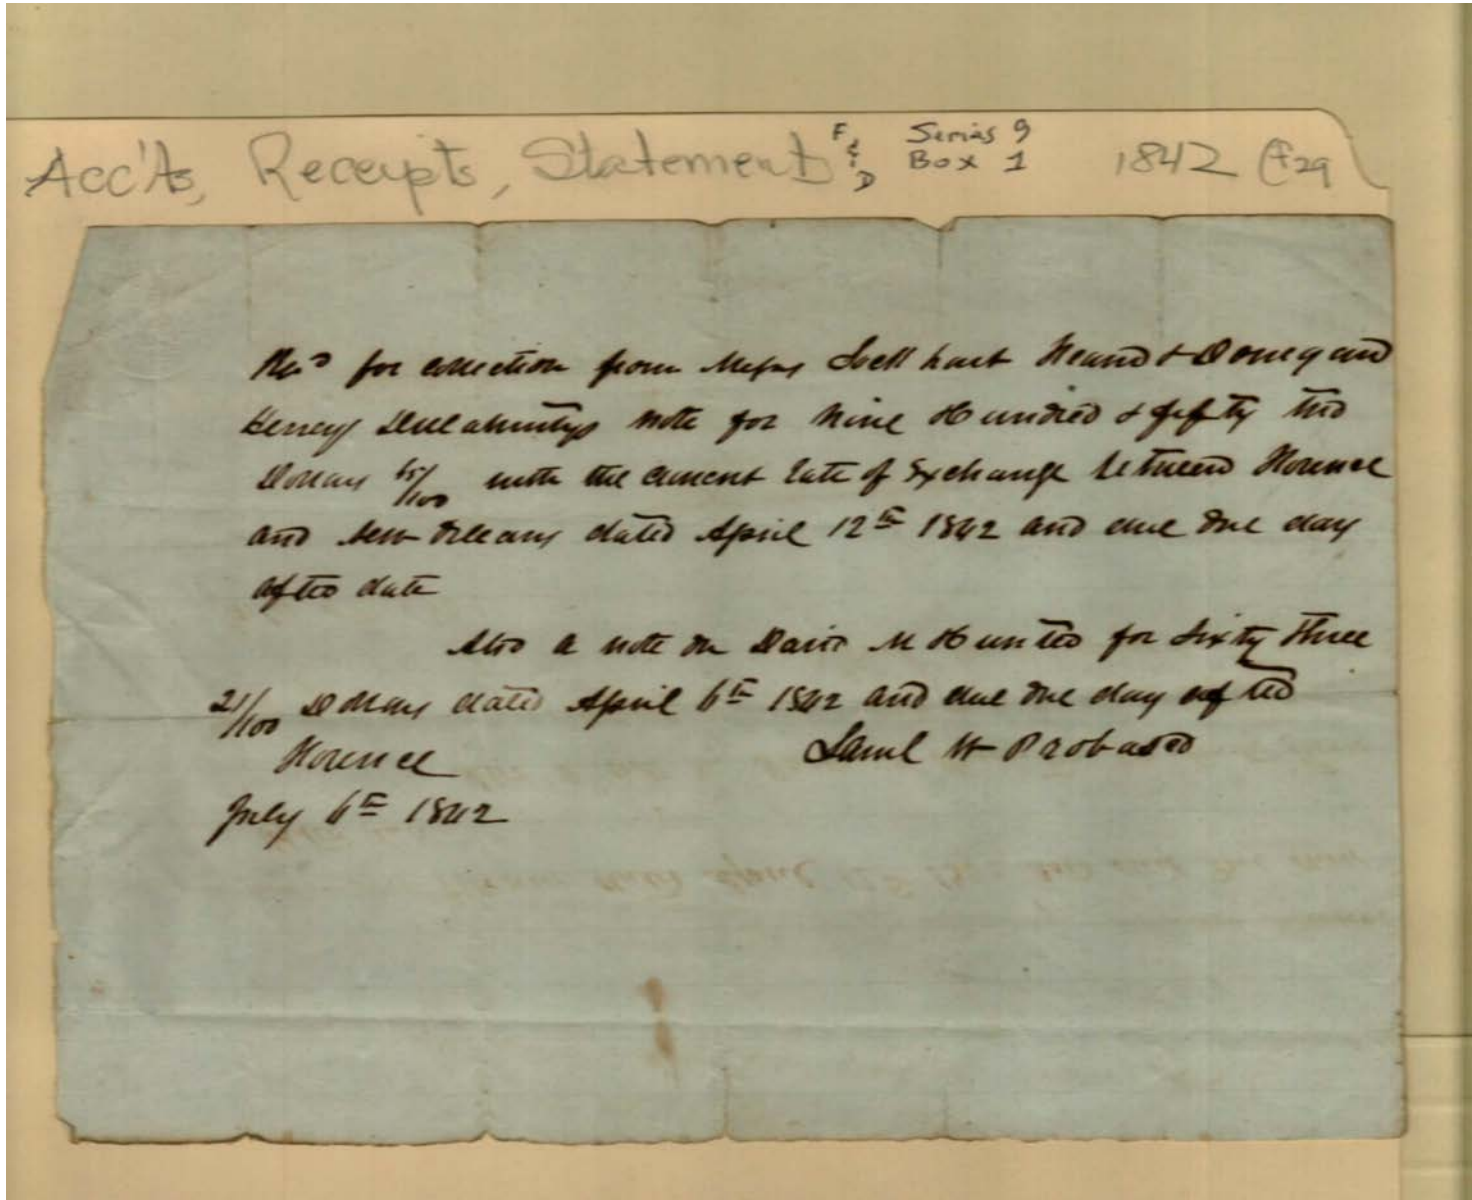 Acc'ts, Receipts, Statement F & D Series 9 Box 1 1842 F29
Recd for collection from Messrs Hart &
note for Nine Hundred & fifty two
Dollars /100 with the current rate of Exchange between Florence
and New Orleans dated April 12th 1842 and due one day
after date
Also a note on David M Hunter for Sixty Three
21/100 Dollars dated April 6th 1842 and due one day after
Florence Saml W Probasco
July 6th 1842